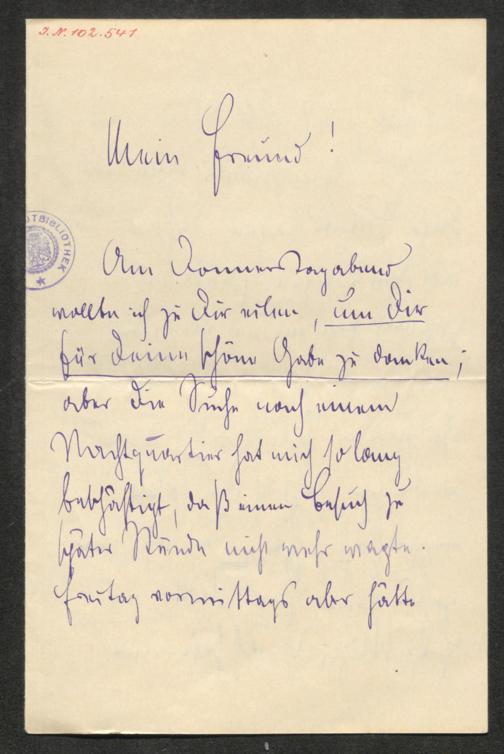 J.N. 102.541
Mein Freund!
STADTBIBLIOTHEK
Am Donnerstagabend
wollte ich zu Dir eilen, um Dir
für Deine schöne Gabe zu danken;
aber die Suche nach einem
Nachtquartier hat mich so lang
beschäftigt, daß einen Besuch zu
später Stunde nicht mehr wagte.
Freitag vormittags aber hätte